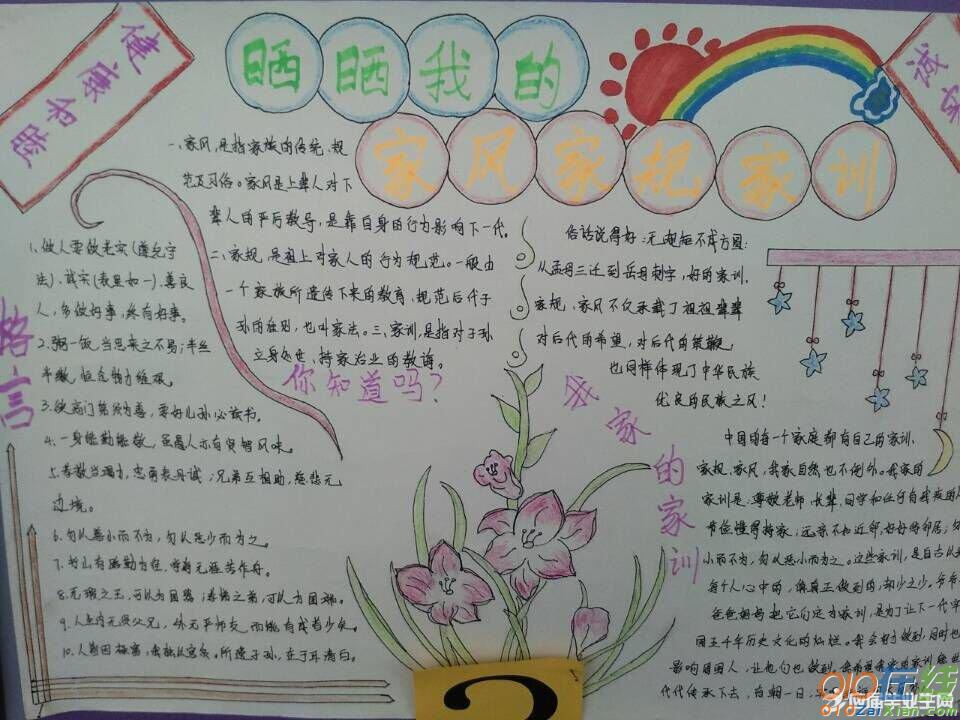 健康和睦
晒晒我的
诚实
家风家规家训
一、家风,是指家族的传统、规
范及习俗。家风是上辈人对下
辈人的严厉教导,是靠自身的行为影响下一代。
二、家规,是祖上对家人的行为规范。一般由
一个家族所遗传下来的教育、规范后代子
孙的准则,也叫家法。三、家训,是指对子孙
立身处世、持家治业的教诲。
你知道吗?
格言
1.做人要做老实(遵纪守
法)、诚实(表里如一)、善良
人,多做好事,终有好事。
2.粥一饭,当思来之不易;半丝
半缕,恒念物力维艰。
3.欲高门第须为善,要好儿孙必读书。
4.一身能勤能敬,虽愚人亦有贤智风味。
5.孝敬当竭力,忠勇表丹诚;兄弟互相助,慈悲无
边境。
6.勿以善小而不为,勿以恶少而为之。
7.书山有路勤为径,学海无涯苦作舟。
8.无瑕之玉,可以为国器;孝悌之弟,可以为国瑞。
9.人生内无贤父兄,外无严师友,而能有成者少矣。
俗话说得好:无规矩不成方圆:
从孟母三迁到岳母刺字,好的家训、
家规、家风不仅承载了祖祖辈辈
对后代的希望,对后代的鞭策,
也同样体现了中华民族
优良的民族之风!
我家的家训
中国的每一个家庭都有自己的家训、
家规、家风,我家自然也不例外。我家的
家训是:尊敬老师、长辈、同学和任何
节俭懂得持家;远亲不如近邻,好好待邻居;
小而不为,勿以恶小而为之。这些家训,是自古以来
每个人心中的,
爸爸妈妈把它们定为家训,是为了让下一代
国五千年历史文化的灿烂。我会努力做到,同时也
影响周围人,让他们也做到。
代代传承下去,
910在线
910zaixian.com
应届毕业生网